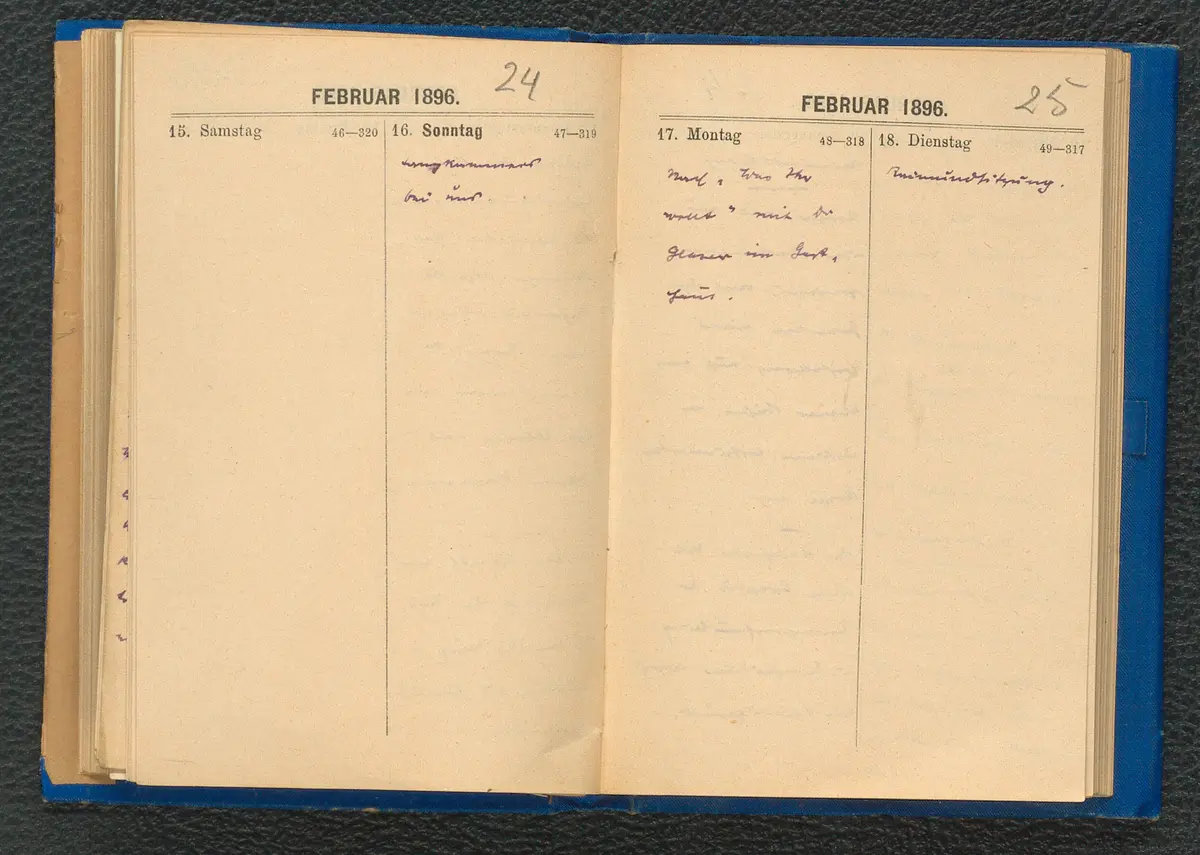 24
FEBRUAR 1896.
15. Samstag 46—320
16. Sonntag 47—319
Langkammers
bei uns.
25
FEBRUAR 1896.
17. Montag 48—318
Nach „Was Ihr
wollt" mit Dr
Glaser im Gast-
haus.
18. Dienstag 49—317
Raimundsitzung.